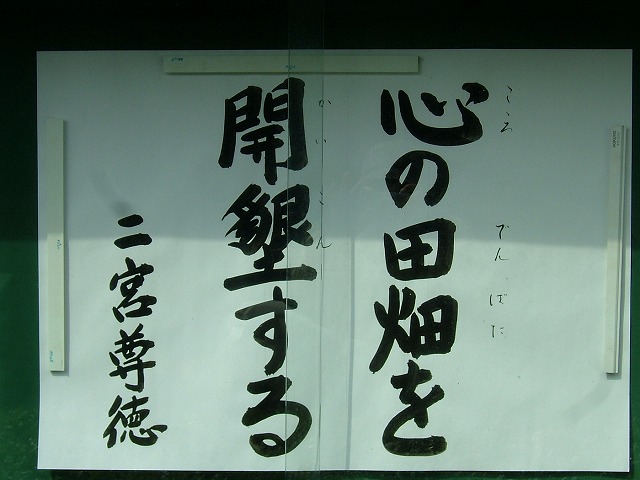 心の田畑を
こころ でんばた
開墾する
かいこん
二宮尊徳